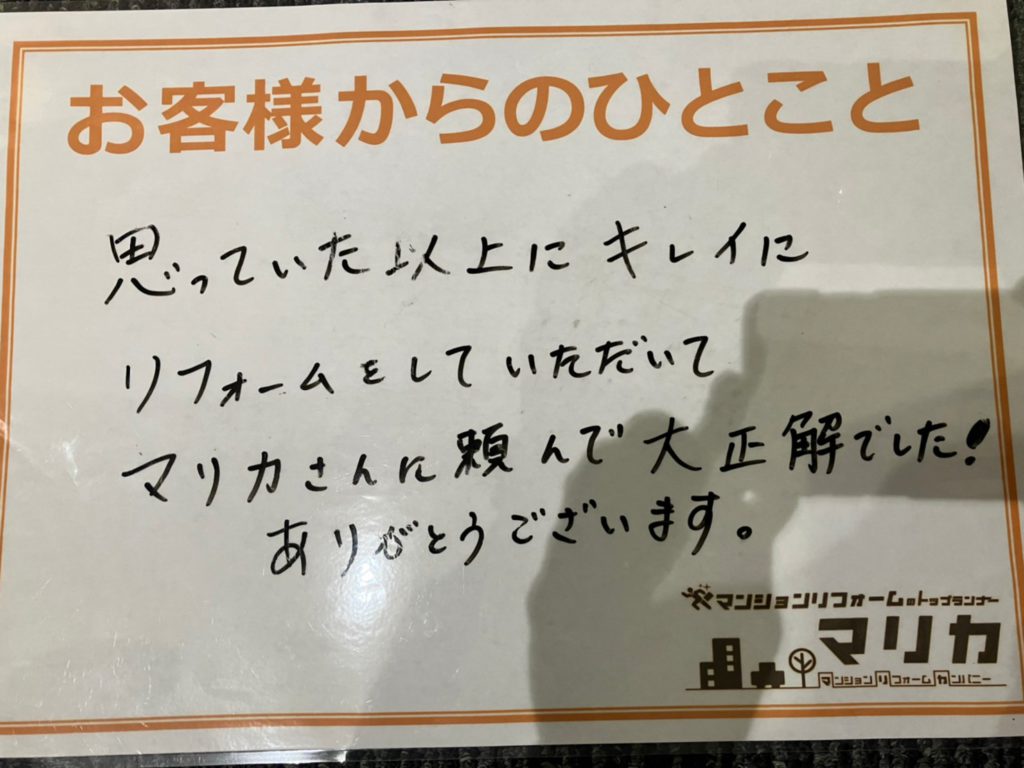 お客様からのひとこと
思っていた以上にキレイに
リフォームをしていただいて
マリカさんに頼んで大正解でした!
ありがとうございます。
マンションリフォームのトップランナー
マリカ
マンションリフォームカンパニー